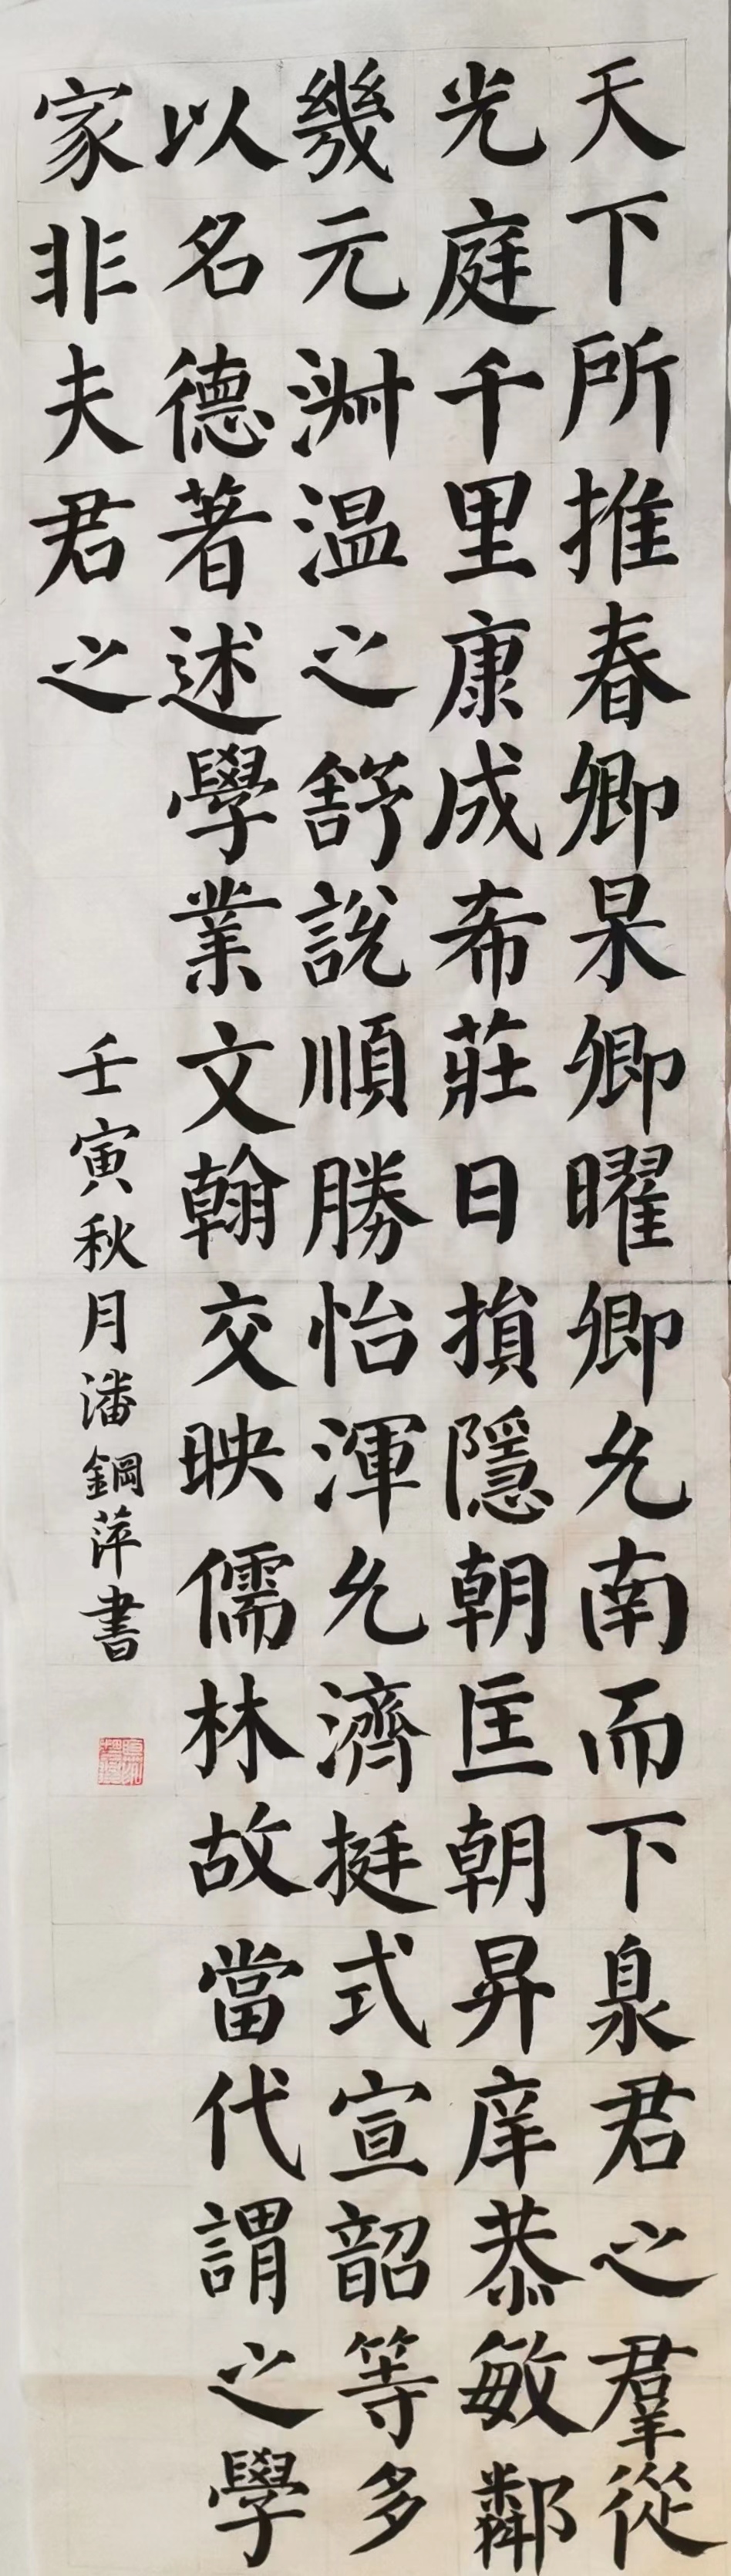 天下所推春卿杲卿曜卿允南而下泉君之羣從
光庭千里康成希莊日損隱朝匡朝昇庠恭敏鄰
幾元淵温之舒說順勝怡渾允濟挺式宣韶等多
以名德著述學業文翰交映儒林故當代謂之學
家非夫君之
壬寅秋月潘鋼萍書